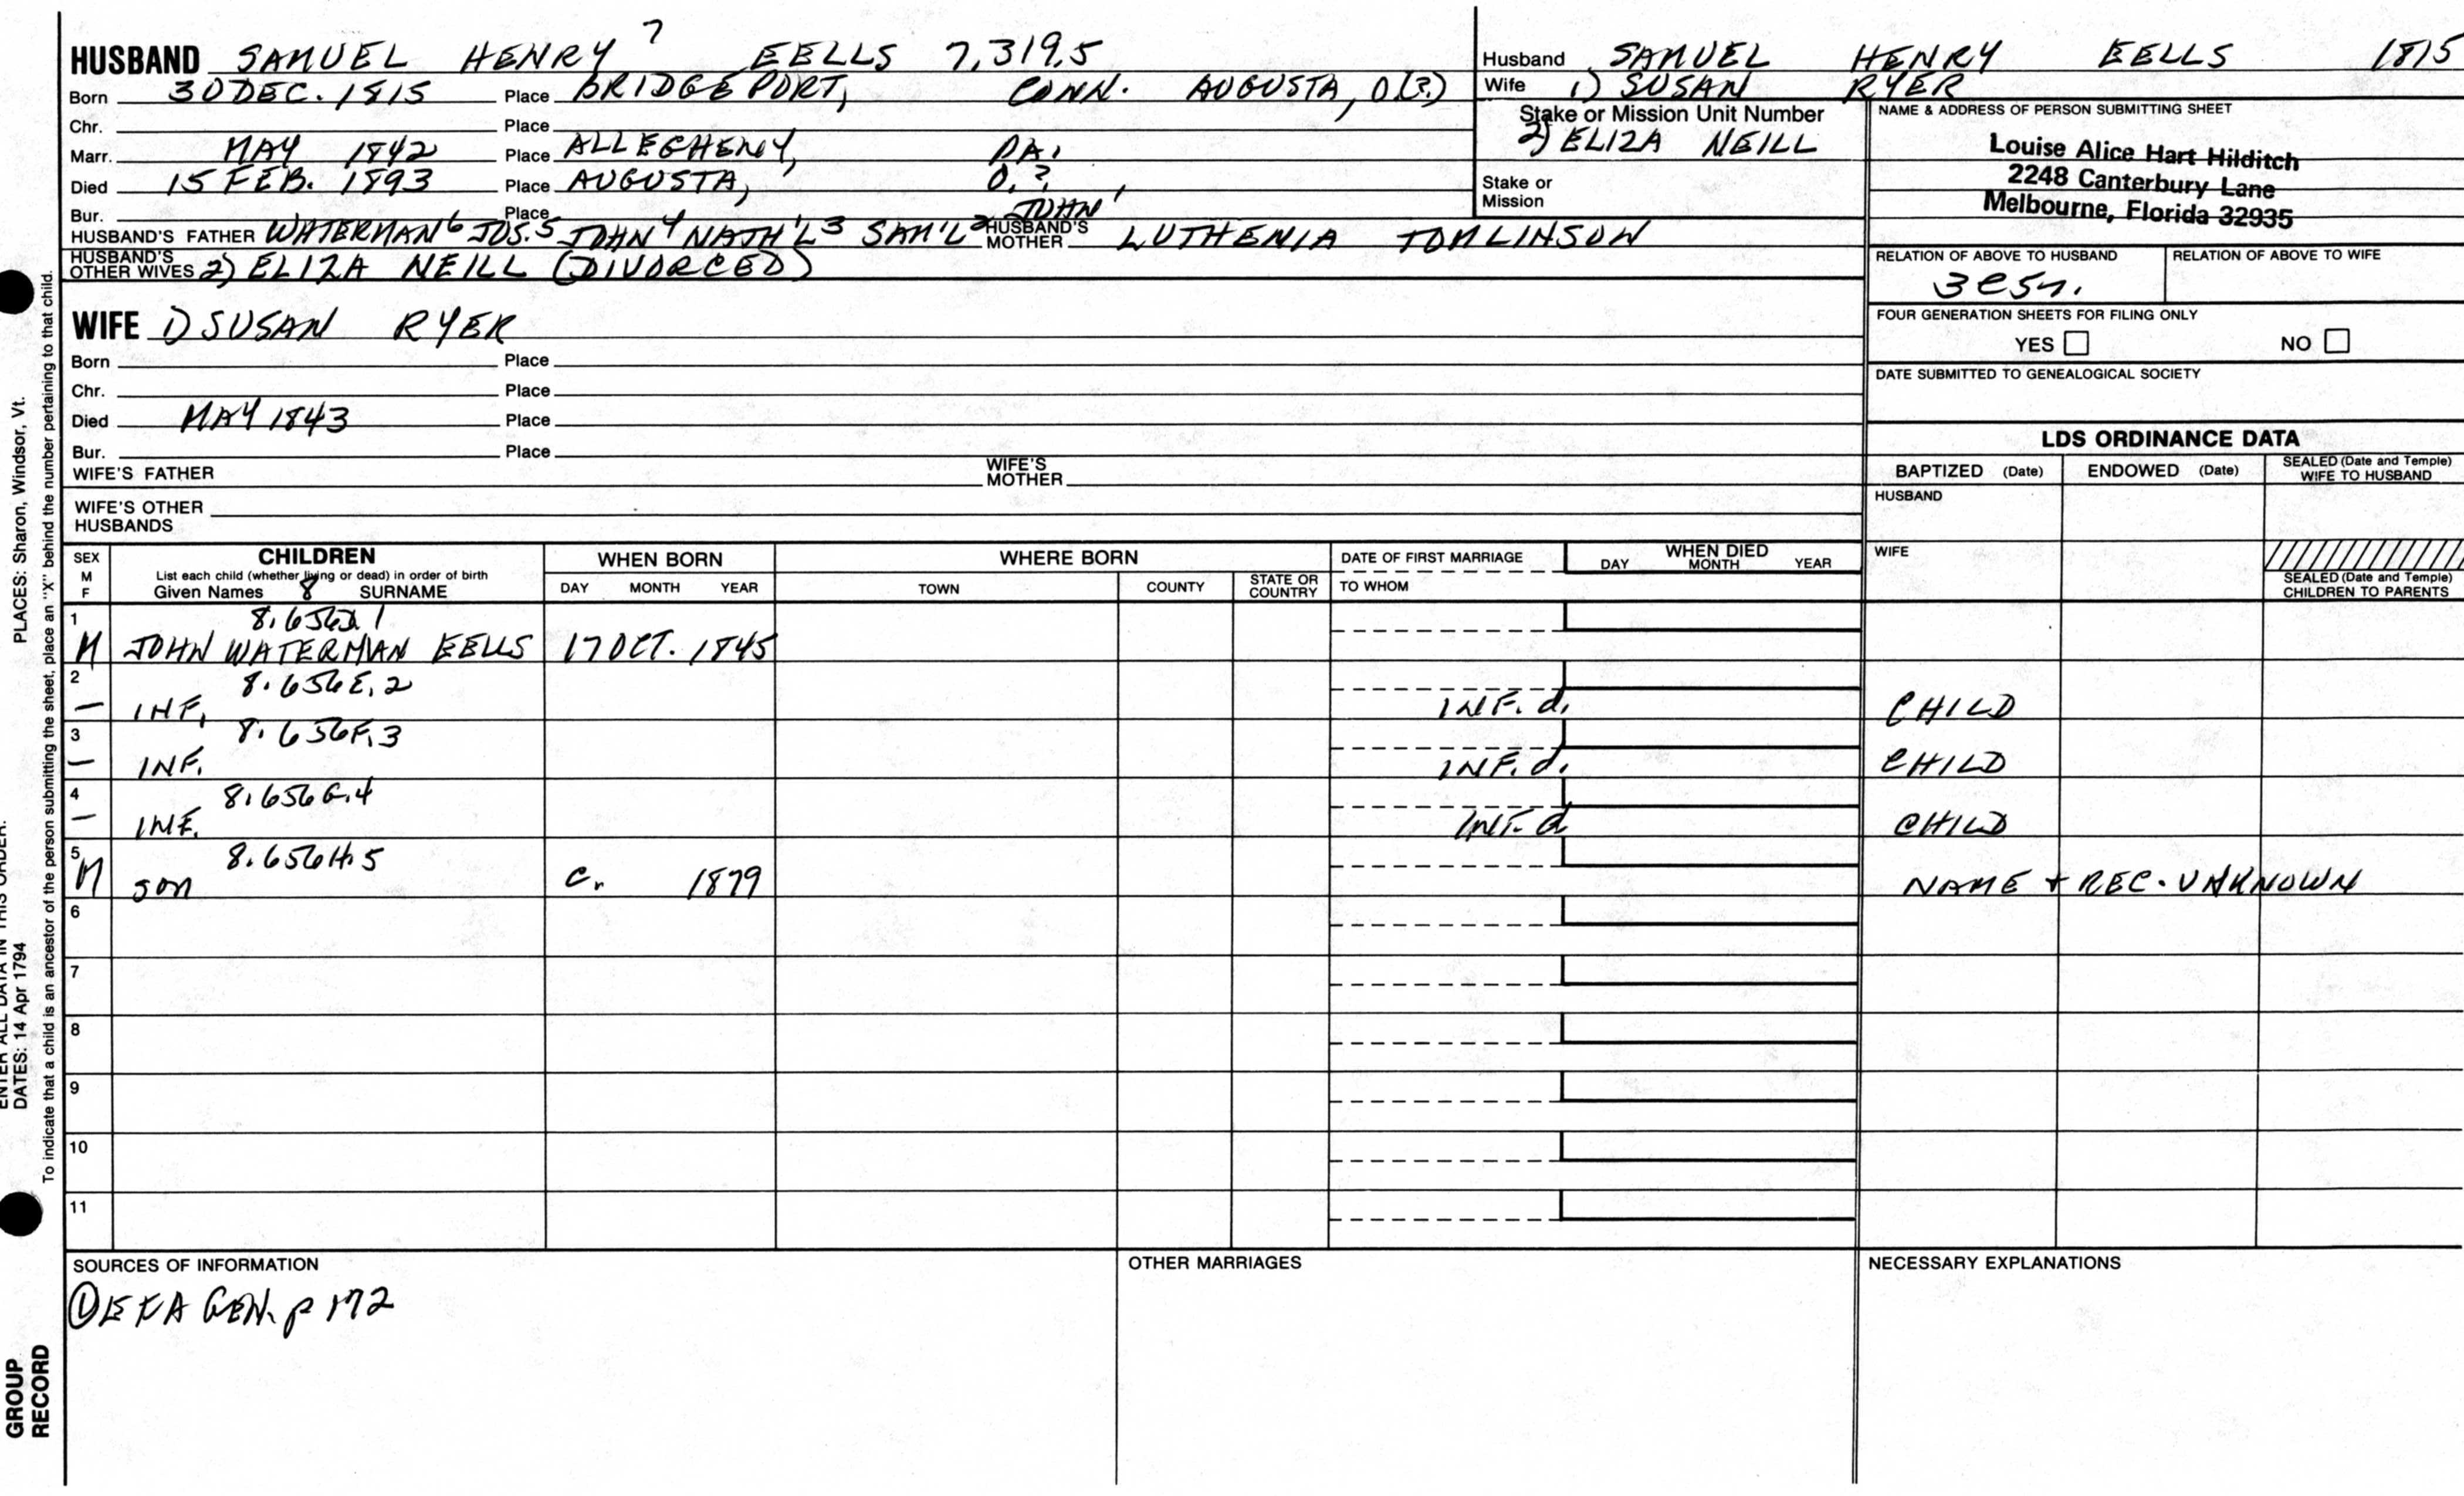 HUSBAND SAMUEL HENRY 7 EELLS 7,319.5
Born 30 DEC. 1815 Place BRIDGEPORT, CONN. AUGUSTA, O(?)
Chr. Place
Marr. MAY 1842 Place ALLEGHENY, PA.
Died 15 FEB. 1893 Place AUGUSTA, O.?
Bur. Place
HUSBAND'S FATHER WATERMAN6 JOS.5 JOHN4 NATH'L3 SAM'L2 JOHN1 HUSBAND'S MOTHER LUTHENIA TOMLINSON
HUSBAND'S OTHER WIVES 2) ELIZA NEILL (DIVORCED)
Husband SAMUEL HENRY EELLS 1815
Wife 1) SUSAN RYER
Stake or Mission Unit Number
2) ELIZA NEILL
Stake or Mission
NAME & ADDRESS OF PERSON SUBMITTING SHEET
Louise Alice Hart Hilditch
2248 Canterbury Lane
Melbourne, Florida 32935
RELATION OF ABOVE TO HUSBAND RELATION OF ABOVE TO WIFE
FOUR GENERATION SHEETS FOR FILING ONLY
YES NO
DATE SUBMITTED TO GENEALOGICAL SOCIETY
WIFE 1) SUSAN RYER
Born Place
Chr. Place
Died MAY 1843 Place
Bur. Place
WIFE'S FATHER WIFE'S MOTHER
WIFE'S OTHER HUSBANDS
LDS ORDINANCE DATA
BAPTIZED (Date) ENDOWED (Date) SEALED (Date and Temple) WIFE TO HUSBAND
HUSBAND
WIFE
SEALED (Date and Temple) CHILDREN TO PARENTS
SEX M F CHILDREN WHEN BORN WHERE BORN DATE OF FIRST MARRIAGE WHEN DIED
List each child (whether living or dead) in order of birth
Given Names 8 SURNAME DAY MONTH YEAR TOWN COUNTY STATE OR COUNTRY TO WHOM DAY MONTH YEAR
1 8.656D.1
M JOHN WATERMAN EELLS 17 OCT. 1845
2 8.656E.2
— INF. INF. d. CHILD
3 8.656F.3
— INF. INF. d. CHILD
4 8.656G.4
— INF. INF. d CHILD
5 8.656H.5
M son c. 1879 NAME + REC. UNKNOWN
6
7
8
9
10
11
SOURCES OF INFORMATION OTHER MARRIAGES NECESSARY EXPLANATIONS
① EFA GEN. p 172
PLACES: Sharon, Windsor, Vt.
ENTER ALL DATA IN THIS ORDER:
DATES: 14 Apr 1794
To indicate that a child is an ancestor of the person submitting the sheet, place an "X" behind the number pertaining to that child.
GROUP
RECORD